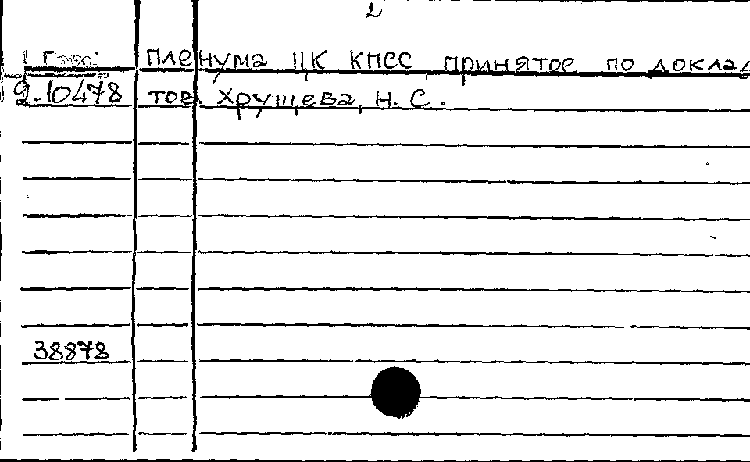 2
Пленума ЦК КПСС принятое по доклад
2.10478 тов. Хрущева, Н. С.
38878